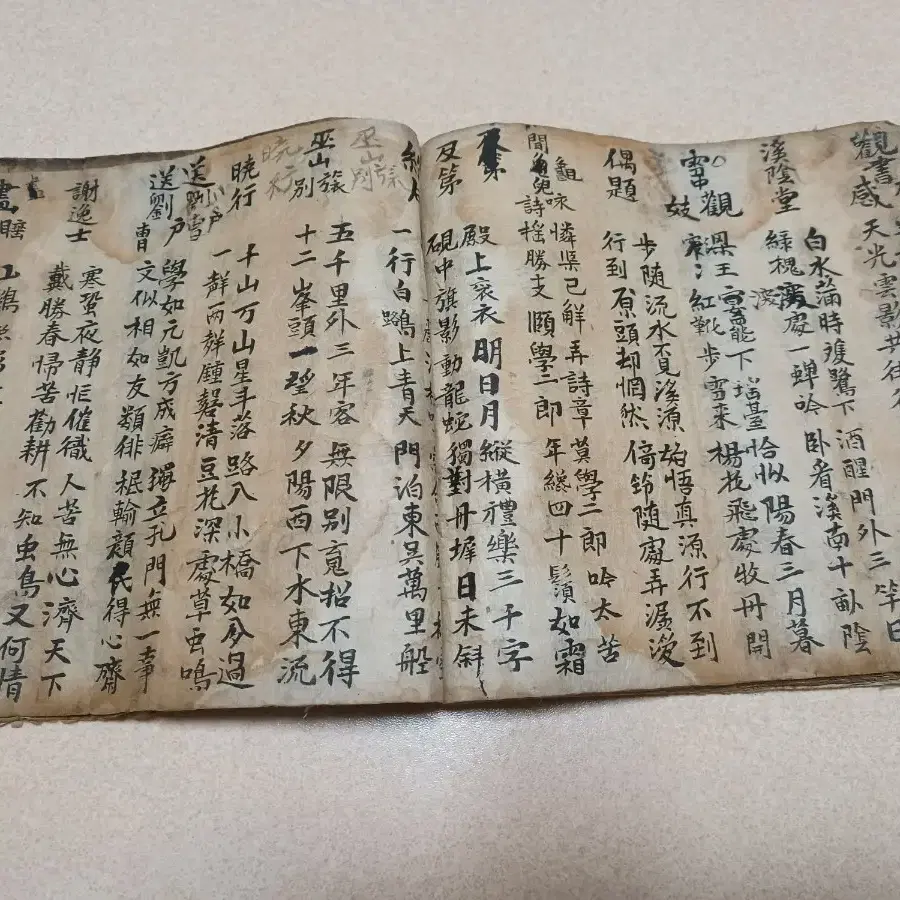 觀書 感
天光雲影共
溪陰堂
白水滿時雙鷺下 酒醒門外三竿日
綠槐深處一蟬吟 臥看溪南十畝陰
雪中觀妓
梁王雪罷下瑤臺 恰似陽春三月暮
窄〻紅靴步雪來 楊技飛處牧丹開
偶題
步隨流水不覓溪源 始悟真源行不到
行到原頭却惘然 倚筇隨處弄潺湲
聞龜兒詠詩
憐渠已解弄詩章 莫學二郎吟太苦
搖膝支頤學二郎 年纔四十鬚如霜
及第
殿上袞衣明日月 縱橫禮樂三千字
硯中旗影動龍蛇 獨對丹墀日未斜
一行白鷺上青天 門泊東吳萬里船
巫山旅別
五千里外三年客 無限別寃招不得
十二峯頭一望秋 夕陽西下水東流
曉行
千山万山星斗落 路入小橋如分過
一聲兩聲鍾磬清 豆花深處草虫鳴
送劉戶曹
學如元凱方成癖 獨立孔門無一事
文似相如友類俳 秪輸顔氏得心齋
謝逸士
寒蛩夜靜忙催織 人苦無心濟天下
戴勝春歸苦勸耕 不知虫鳥又何情
畫睡